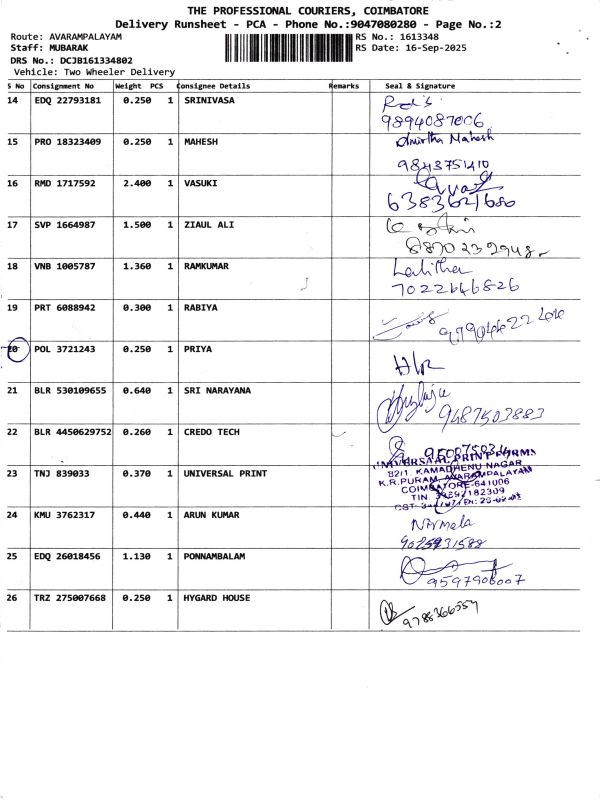 THE PROFESSIONAL COURIERS, COIMBATORE
Delivery Runsheet - PCA - Phone No.:9047080280 - Page No.:2
Route: AVARAMPALAYAM RS No.: 1613348
Staff: MUBARAK RS Date: 16-Sep-2025
DRS No.: DCJB161334802
Vehicle: Two Wheeler Delivery
S No Consignment No Weight PCS Consignee Details Remarks Seal & Signature
14 EDQ 22793181 0.250 1 SRINIVASA
9894087006
15 PRO 18323409 0.250 1 MAHESH Amirtha Mahesh
9843751410
16 RMD 1717592 2.400 1 VASUKI
6383621680
17 SVP 1664987 1.500 1 ZIAUL ALI
18 VNB 1005787 1.360 1 RAMKUMAR Lalitha
7022646826
19 PRT 6088942 0.300 1 RABIYA
20 POL 3721243 0.250 1 PRIYA
21 BLR 530109655 0.640 1 SRI NARAYANA
9487503883
22 BLR 4450629752 0.260 1 CREDO TECH
23 TNJ 839033 0.370 1 UNIVERSAL PRINT
82/1, KAMADHENU NAGAR
K.R.PURAM, AVARAMPALAYAM
COIMBATORE-641006
TIN.
24 KMU 3762317 0.440 1 ARUN KUMAR Nirmala
25 EDQ 26018456 1.130 1 PONNAMBALAM
9597906007
26 TRZ 275007668 0.250 1 HYGARD HOUSE
9788366554